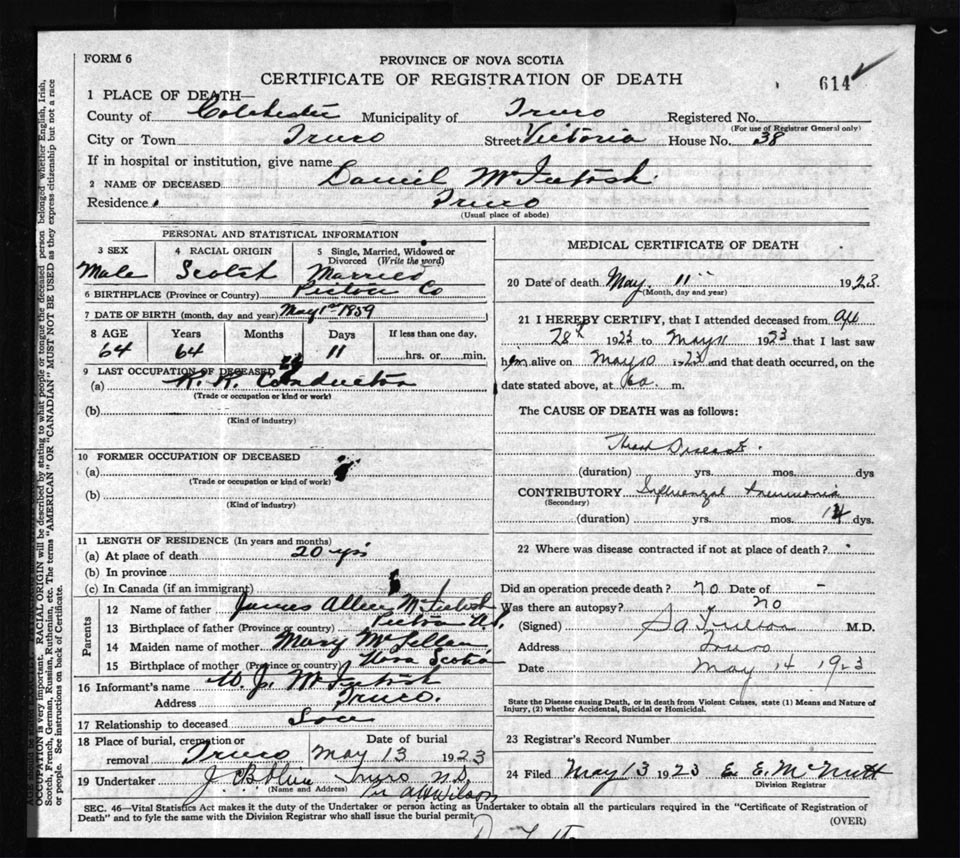 FORM 6
PROVINCE OF NOVA SCOTIA
CERTIFICATE OF REGISTRATION OF DEATH
614
1 PLACE OF DEATH—
County of Colchester Municipality of Truro Registered No.
(For use of Registrar General only)
City or Town Truro Street Victoria House No. 38
If in hospital or institution, give name
2 NAME OF DECEASED Daniel McIntosh
Residence Truro
(Usual place of abode)
PERSONAL AND STATISTICAL INFORMATION
3 SEX 4 RACIAL ORIGIN 5 Single, Married, Widowed or Divorced (Write the word)
Male Scotch Married
6 BIRTHPLACE (Province or Country) Pictou Co
7 DATE OF BIRTH (month, day and year) May 1st 1859
8 AGE Years Months Days If less than one day,
64 64 11 hrs. or min.
9 LAST OCCUPATION OF DECEASED
(a) R. R. Conductor
(Trade or occupation or kind or work)
(b)
(Kind of industry)
10 FORMER OCCUPATION OF DECEASED
(a)
(Trade or occupation or kind of work)
(b)
(Kind of industry)
11 LENGTH OF RESIDENCE (In years and months)
(a) At place of death 20 yrs
(b) In province
(c) In Canada (if an immigrant)
Parents
12 Name of father James Allen McIntosh
13 Birthplace of father (Province or country) Pictou
14 Maiden name of mother Mary McLellan
15 Birthplace of mother (Province or country) Nova Scotia
16 Informant's name W. J. McIntosh
Address Truro.
17 Relationship to deceased Son
18 Place of burial, cremation or removal Truro Date of burial May 13 1923
19 Undertaker Truro N.S.
(Name and Address) Per Wilson
MEDICAL CERTIFICATE OF DEATH
20 Date of death May 11 1923.
(Month, day and year)
21 I HEREBY CERTIFY, that I attended deceased from Apl
28th 1923 to May 11 1923 that I last saw
him alive on May 10 1923 and that death occurred, on the
date stated above, at m.
The CAUSE OF DEATH was as follows:
Heart Disease.
(duration) yrs. mos. dys
CONTRIBUTORY Influenzal Pneumonia
(Secondary)
(duration) yrs. mos. 14 dys.
22 Where was disease contracted if not at place of death?
Did an operation precede death? no Date of –
Was there an autopsy? no
(Signed) M.D.
Address Truro
Date May 14 1923
State the Disease causing Death, or in death from Violent Causes, state (1) Means and Nature of Injury, (2) whether Accidental, Suicidal or Homicidal.
23 Registrar's Record Number
24 Filed May 13 1923 E. E. McNutt
Division Registrar
SEC. 46—Vital Statistics Act makes it the duty of the Undertaker or person acting as Undertaker to obtain all the particulars required in the "Certificate of Registration of
Death" and to fyle the same with the Division Registrar who shall issue the burial permit.
(OVER)
OCCUPATION is very important. RACIAL ORIGIN will be described by stating to what people or tongue the deceased person belonged whether English, Irish,
Scotch, French, German, Russian, Ruthenian, etc. The terms "AMERICAN" OR "CANADIAN" MUST NOT BE USED as they express citizenship but not a race
or people. See instructions on back of Certificate.